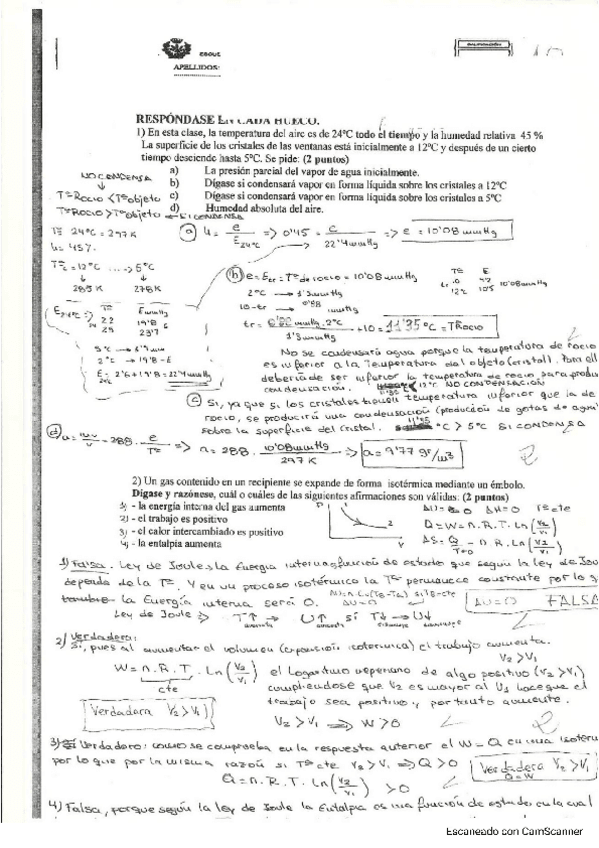 APELLIDOS:
RESPÓNDASE EN CADA HUECO.
1) En esta clase, la temperatura del aire es de 24ºC todo el tiempo y la humedad relativa 45 %
La superficie de los cristales de las ventanas está inicialmente a 12ºC y después de un cierto
tiempo desciende hasta 5ºC. Se pide: (2 puntos)
a) La presión parcial del vapor de agua inicialmente.
b) Dígase si condensará vapor en forma líquida sobre los cristales a 12ºC
c) Dígase si condensará vapor en forma líquida sobre los cristales a 5ºC
d) Humedad absoluta del aire.
NO CONDENSA
↓
Tª Rocio < Tª objeto
Tª ROCIO > Tª objeto → SI CONDENSA
Tª 24ºC = 297 K
h = 45%
(a) h = e / E24ºC => 0'45 = e / 22'4 mmHg => e = 10'08 mmHg
Tªc = 12ºC ....> 5ºC
↓ ↓
285 K 278 K
(b) e = Etr = Tª de rocio = 10'08 mmHg
2ºC → 1'3 mmHg
+10 = 11'35 ºC = Trocio
E = 2'6 + 19'8 = 22'4 mmHg
No se condensará agua porque la temperatura de rocio
es inferior a la temperatura del objeto (cristal). Para ell
debería de ser inferior la temperatura de rocio para produ
condensación. 12ºC NO CONDENSACION
(c) Si, ya que si los cristales tienen temperatura inferior que la de
rocio, se producirá una condensación (producción de gotas de agua)
sobre la superficie del cristal. ºC > 5ºC SI CONDENSA
(d) a = 288 · e / Tª => a = 288 · 10'08 mmHg / 297 K => a = 9'77 gr/m3
2) Un gas contenido en un recipiente se expande de forma isotérmica mediante un émbolo.
Dígase y razónese, cuál o cuáles de las siguientes afirmaciones son válidas: (2 puntos)
1) - la energía interna del gas aumenta
2) - el trabajo es positivo
3) - el calor intercambiado es positivo
4) - la entalpia aumenta
ΔU = 0 ΔH = 0 Tª cte
Q = W = n. R. T. Ln (V2/V1)
1) Falsa. Ley de Joule > la Energia interna función de estado que según la ley de Jou
depende de la Tª. Y en un proceso isotérmico la Tª permanece constante por lo q
la Energía interna será 0. ΔU = 0 FALSA
Ley de Joule => T↑ → U↑ si T↓ → U↓
2) Verdadera:
Si, pues al aumentar el volumen (expansión isotermica) el trabajo aumenta.
V2 > V1
W = n. R. T. Ln (V2/V1) el logaritmo neperiano de algo positivo (V2 > V1)
cte cumpliendose que V2 es mayor al V1 hace que el
trabajo sea positivo y por tanto aumente.
Verdadara V2 > V1
V2 > V1 => W > 0
3) Verdadero: como se comprueba en la respuesta anterior el W = Q en una isoterm
por lo que por la misma razón si Tª cte V2 > V1 => Q > 0
Q = n. R. T. Ln (V2/V1) > 0
Verdadera V2 > V1
Q = W
4) Falsa, porque según la ley de Joule la Entalpia es una función de estado, en la cual
Escaneado con CamScanner